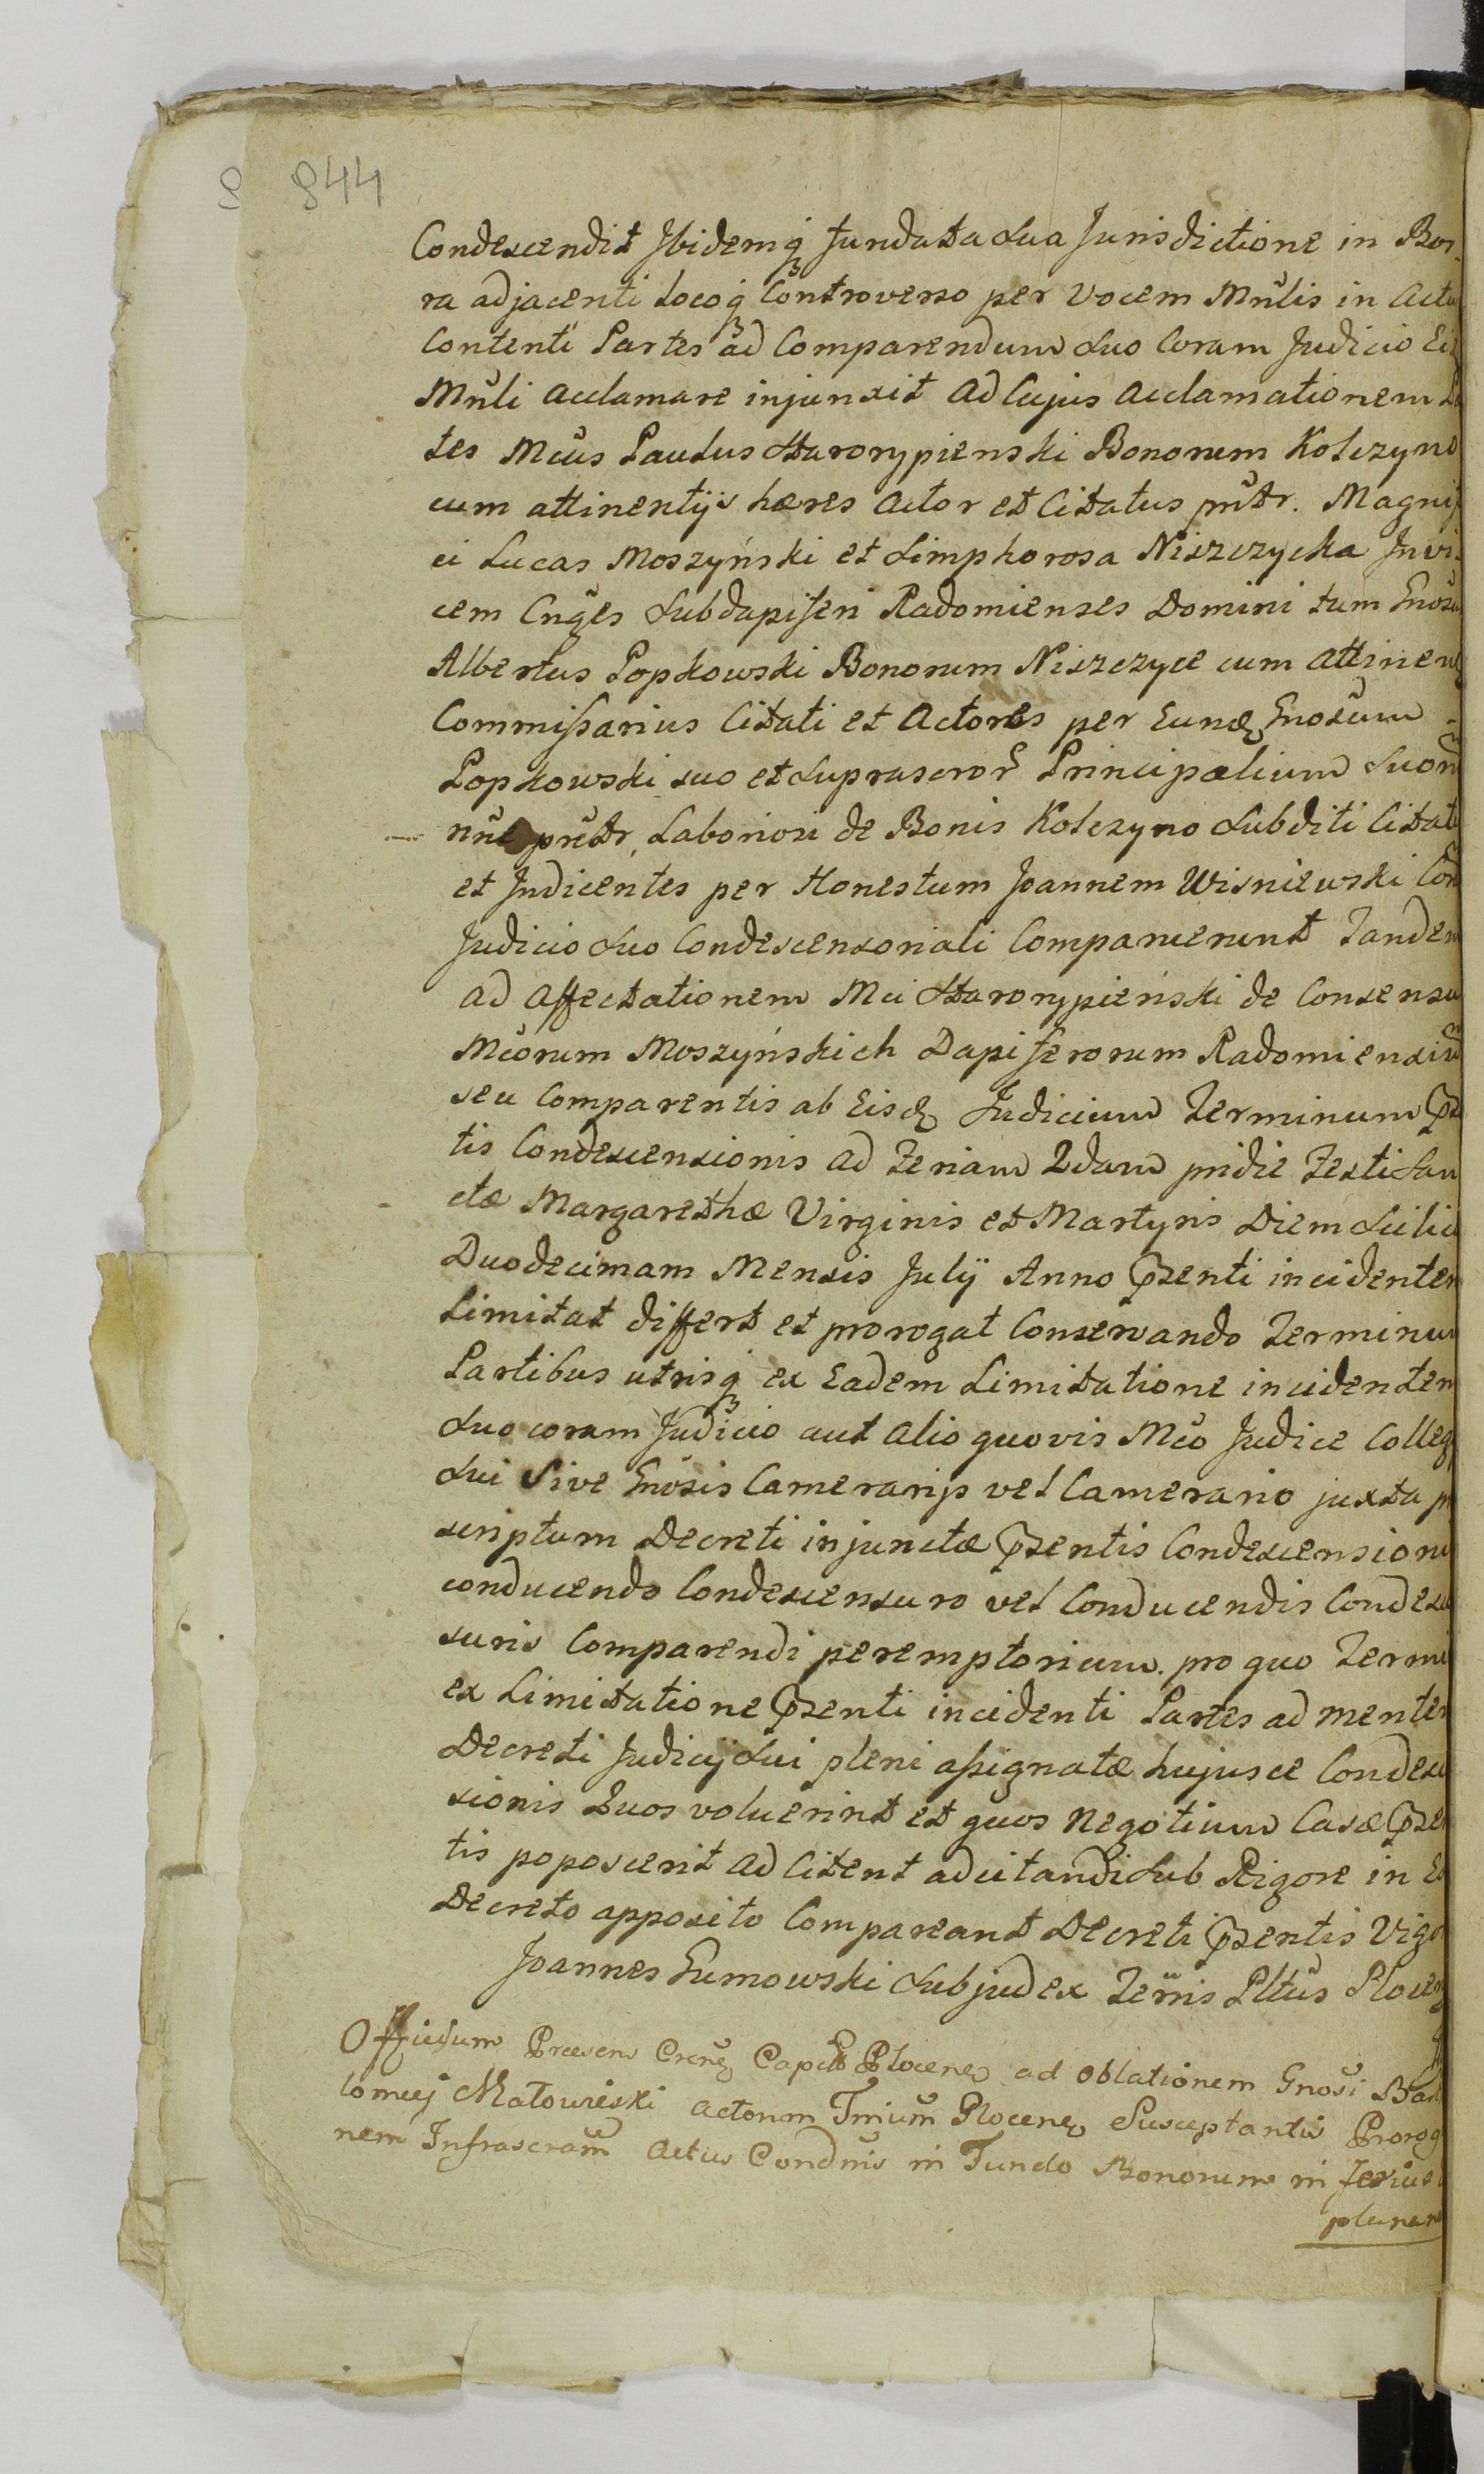 8 844
Condescendit Ibidemq fundata sua Jurisdictione in Bor-
ra adjacenti Locoq Controverso per Vocem Mnlis in Actu
Contenti Partes ad Comparendum suo Coram Judicio
Mnli acclamare injunxit ad Cujus acclamationem
tes Mcus Paulus Starorypienski Bonorum Kolczyno
cum attinentijs hæres Actor et Citatus pnttr. Magnif
ci Lucas Moszyński et Simphorosa Niszczycka Invi-
cem Cnges Subdapiferi Radomienses Domini tum Gnosus
Albertus Popkowski Bonorum Niszczyce cum attinen
Commissarius Citati et Actores per Eund Gnosum
Popkowski suo et Suprascror Principalium Suor
nne pnttr, Laboriosi de Bonis Kolczyno Subditi Citati
et Judicentes per Honestum Joannem Wisniewski
Judicio Suo Condescensoriali Comparuerunt Tandem
ad Affectationem Mci Starorypieński de Consensu
Mcorum Moszyńskich Dapiferorum Radomiensium
seu Comparentis ab Eisd Judicium Terminum
tis Condescensionis ad Feriam 2dam pridie Festi San
ctæ Margarethæ Virginis et Martyris Diem Scilic
Duodecimam Mensis Julij Anno Pzenti incidentem
Limitat differt et prorogat Conservando Terminum
Partibus utrisq ex Eadem Limitatione incidentem
Suo coram Judicio aut alio quovis Mco Judice Colleg
Sui Sive Gnosis Camerarijs vel Camerario juxta p
scriptum Decreti injunctæ Pzentis Condescensioni
conducendo Condescensuro vel Conducendis Condesc
suris Comparendi peremptorium. pro quo Termi
ex Limitatione Pzenti incidenti Partes ad mentem
Decreti Judicij Sui pleni assignatæ hujusce Condesc
sionis Quos voluerint et quos Negotium Casæ Pzen
tis poposcerit ad Citent adcitandi Sub Rigore in
Decreto apposito Compareant Decreti Pzentis Vigo
Joannes Gumowski Subjudex Terris Pltus Plocen
Officium Præsens Crense Plocense ad Oblationem Gnosi
lomej Matowieski Actorum Trium Plocens Susceptantis Prorog
nem Infrascram Actus Condnis in Fundo Bonorum in